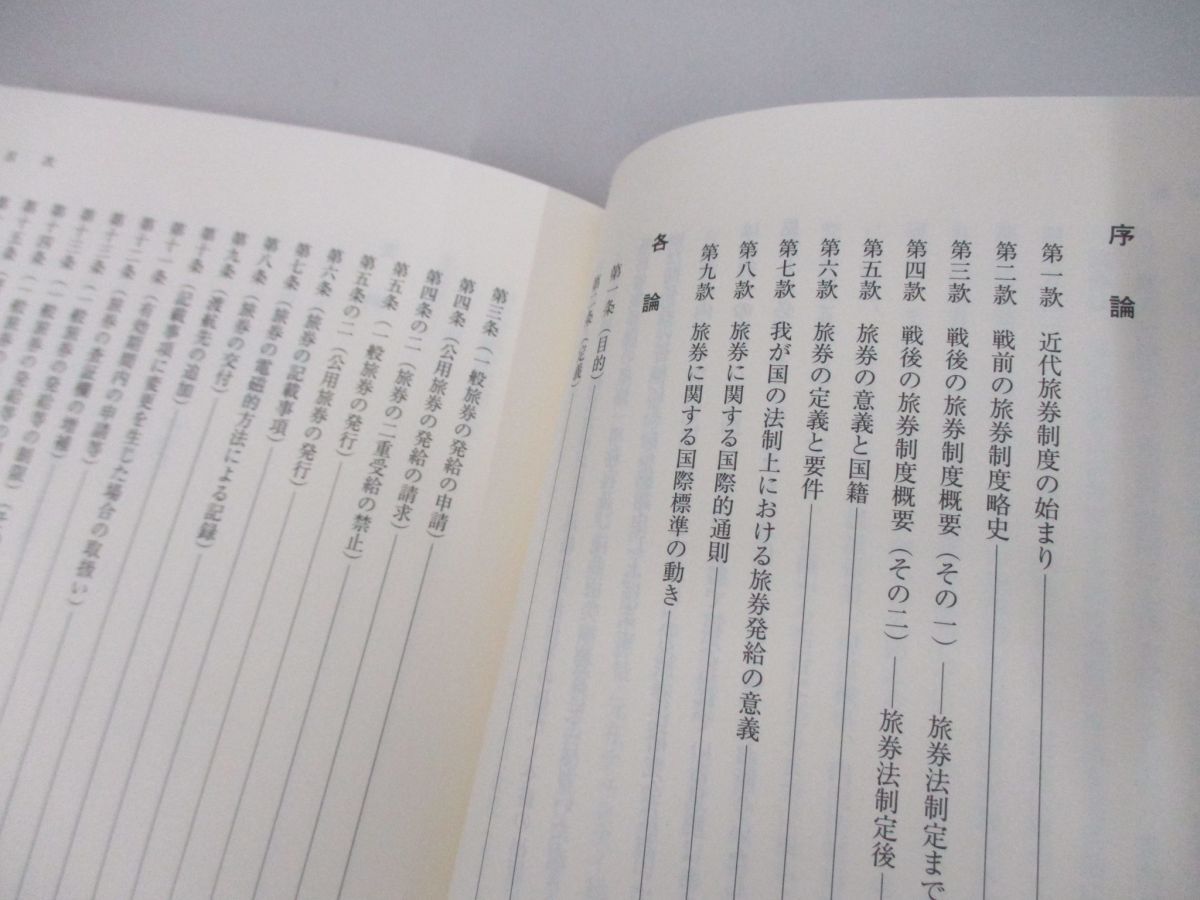 序論
第一款 近代旅券制度の始まり
第二款 戦前の旅券制度略史
第三款 戦後の旅券制度概要(その一)――旅券法制定まで
第四款 戦後の旅券制度概要(その二)――旅券法制定後
第五款 旅券の意義と国籍
第六款 旅券の定義と要件
第七款 我が国の法制上における旅券発給の意義
第八款 旅券に関する国際的通則
第九款 旅券に関する国際標準の動き
各論
第一条(目的)
第二条(定義)
目次
第三条(一般旅券の発給の申請)
第四条(公用旅券の発給の請求)
第四条の二(旅券の二重受給の禁止)
第五条(一般旅券の発行)
第五条の二(公用旅券の発行)
第六条(旅券の記載事項)
第七条(旅券の電磁的方法による記録)
第八条(旅券の交付)
第九条(渡航先の追加)
第十条(記載事項に変更を生じた場合の取扱い)
第十一条(有効期間内の申請等)
第十二条(旅券の査証欄の増補)
第十三条(一般旅券の発給等の制限)
第十四条(一般旅券の発給等の
第十五条(